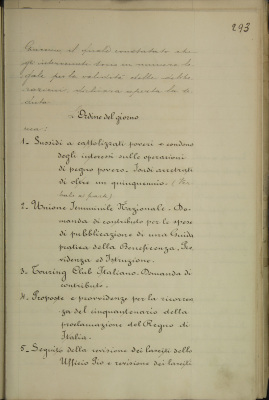 293
il quale constatato che
gli intervenuti sono in numero le-
gale per la validità delle delibe-
razioni dichiara aperta la se-
duta
Ordine del giorno
1_ Sussidi a cattolizzati poveri e condono
degli interessi sulle operazioni
di pegno povero. Saldi arretrati
di oltre un quinquennio.
2_ Unione Femminile Nazionale. Do-
manda di contributo per le spese
di pubblicazione di una Guida
pratica della Beneficenza, Pre
videnza ed Istruzione.
3_ Touring Club Italiano. Domanda di
contributo.
4_ Proposte e provvidenze per la ricorren
za del cinquantenario della
proclamazione del Regno di
Italia.
5_ Seguito della revisione dei lasciti dello
Ufficio Pio e revisione dei lasciti